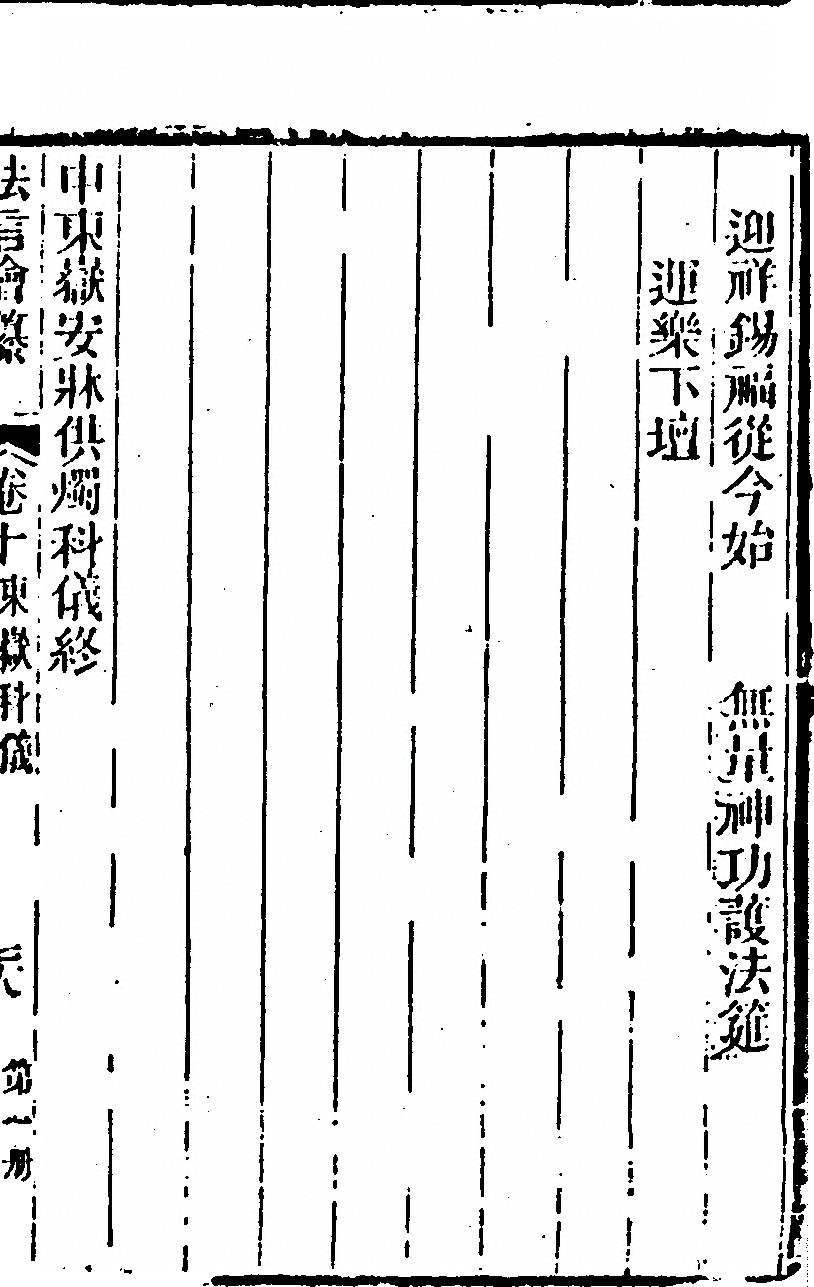 迎祥錫福從今始　無量神功護法筵
迎樂下壇
申東嶽安牀供燭科儀終
法言會纂　卷十東嶽科儀　第一册